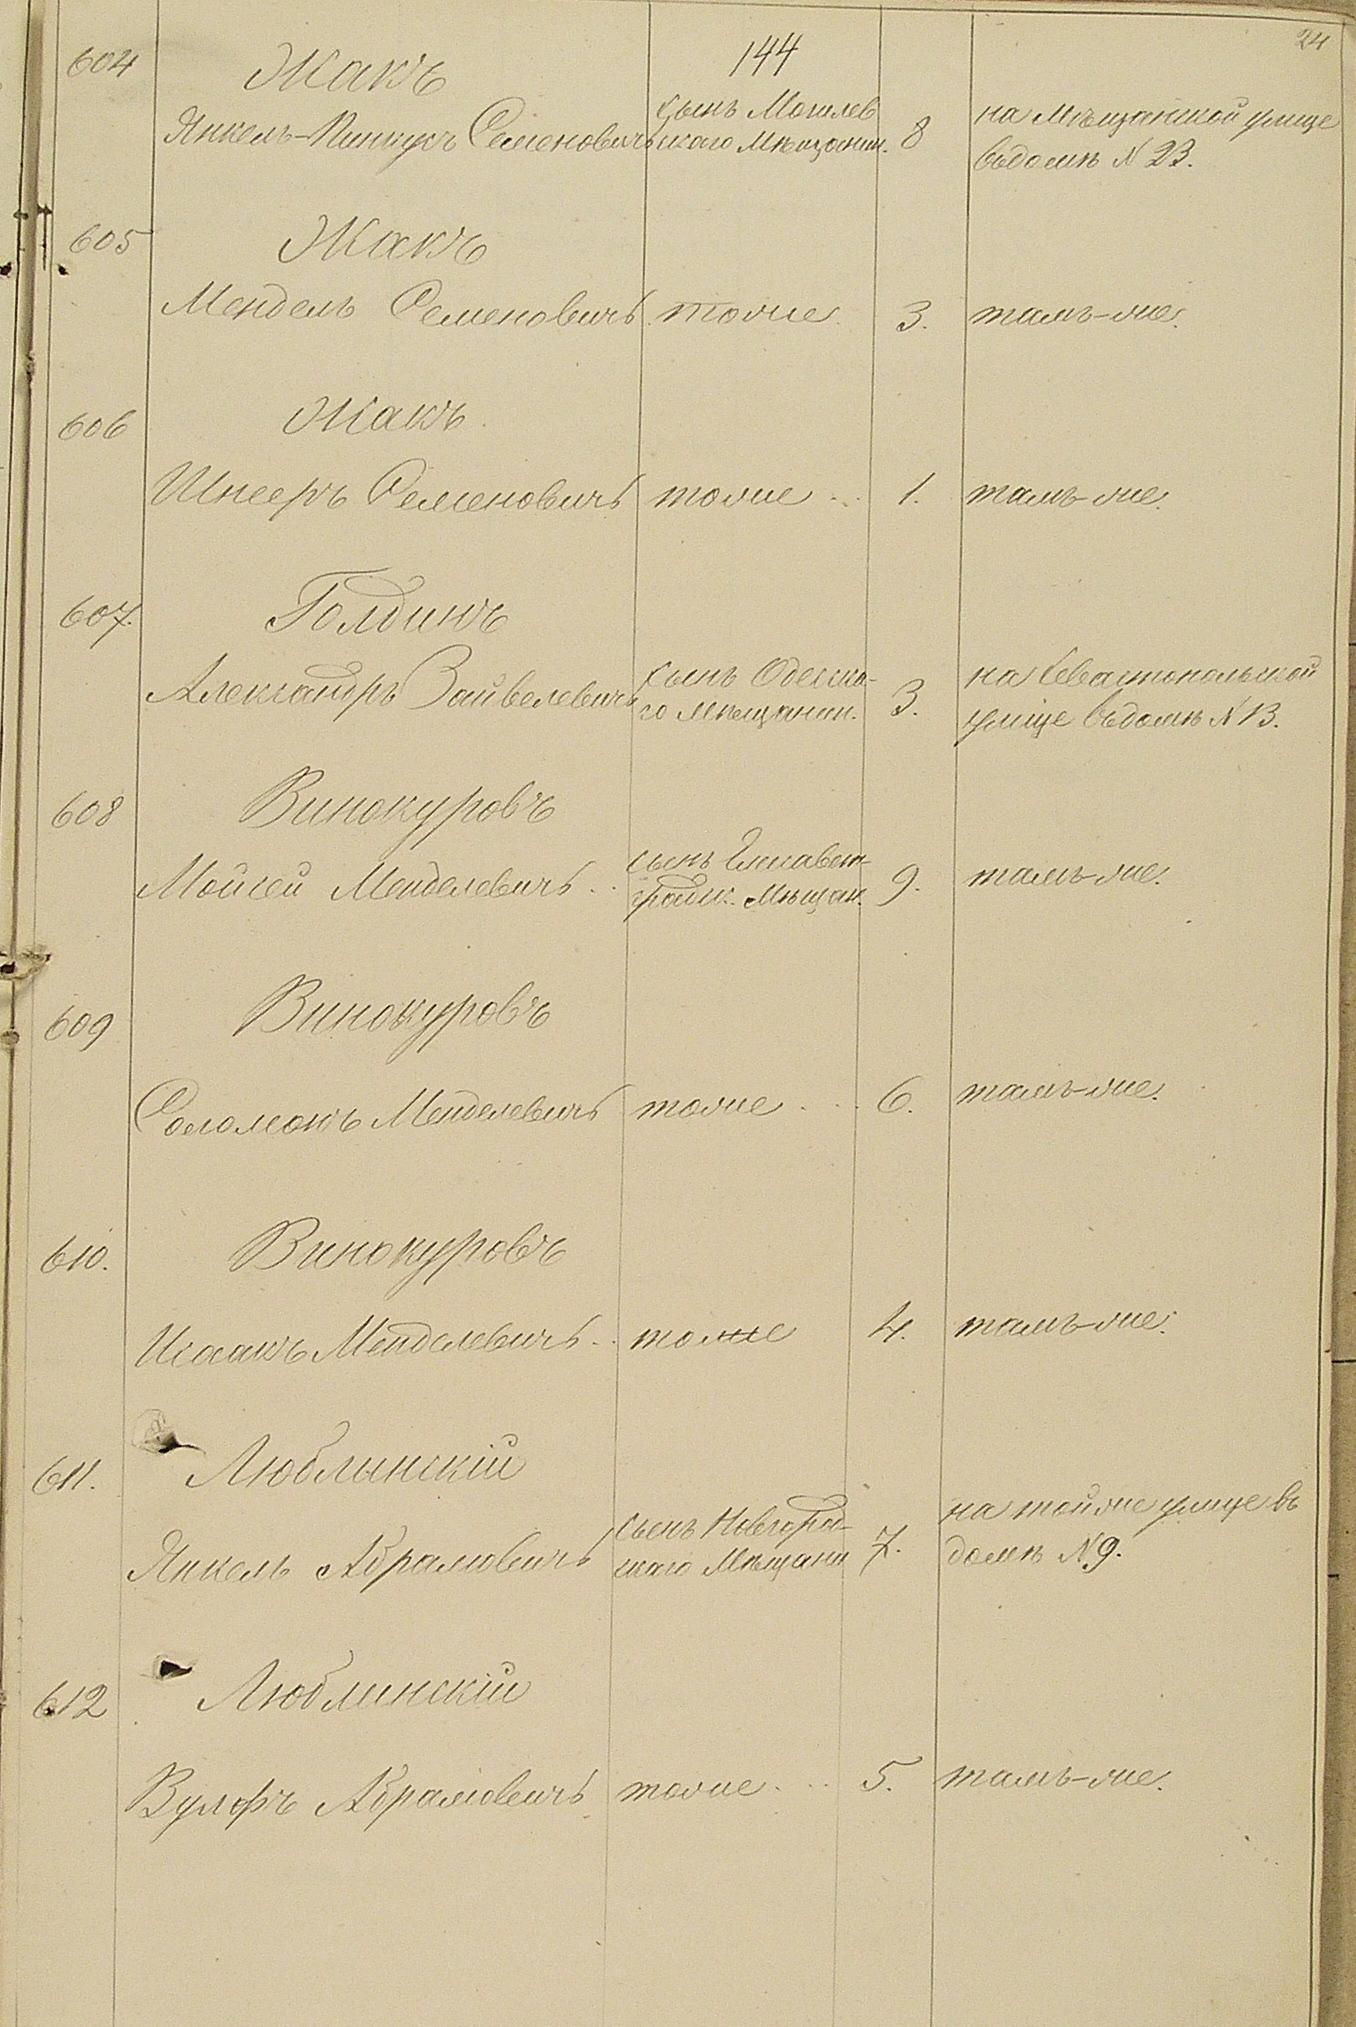 144
24
604 Жакъ
Янкель-Пинкусъ Семеновичъ сынъ Могилев
скаго Мѣщанин. 8 на Мѣщанской улице
въ домѣ N 23.
605 Жакъ
Мендель Семеновичъ тоже 3. тамъ-же.
606 Жакъ
Шнееръ Семеновичъ тоже 1. тамъ-же.
607. Голдинъ
Александръ Зайвелевичъ сынъ Одесска-
го мѣщанин. 3. на Севастопольской
улице въ домѣ N 13.
608 Винокуровъ
Мойсей Менделевичъ сынъ Елисавет-
градск. Мѣщан. 9. тамъ-же.
609 Винокуровъ
Соломонъ Менделевичъ тоже 6. тамъ-же.
610. Винокуровъ
Исаакъ Менделевичъ тоже 4. тамъ-же.
611. Люблинскій
Янкель Абрамовичъ сынъ Новгород-
скаго Мѣщани 7. на той же улице въ
домѣ N 9.
612 Люблинскій
Вульфъ Абрамовичъ тоже 5. тамъ-же.